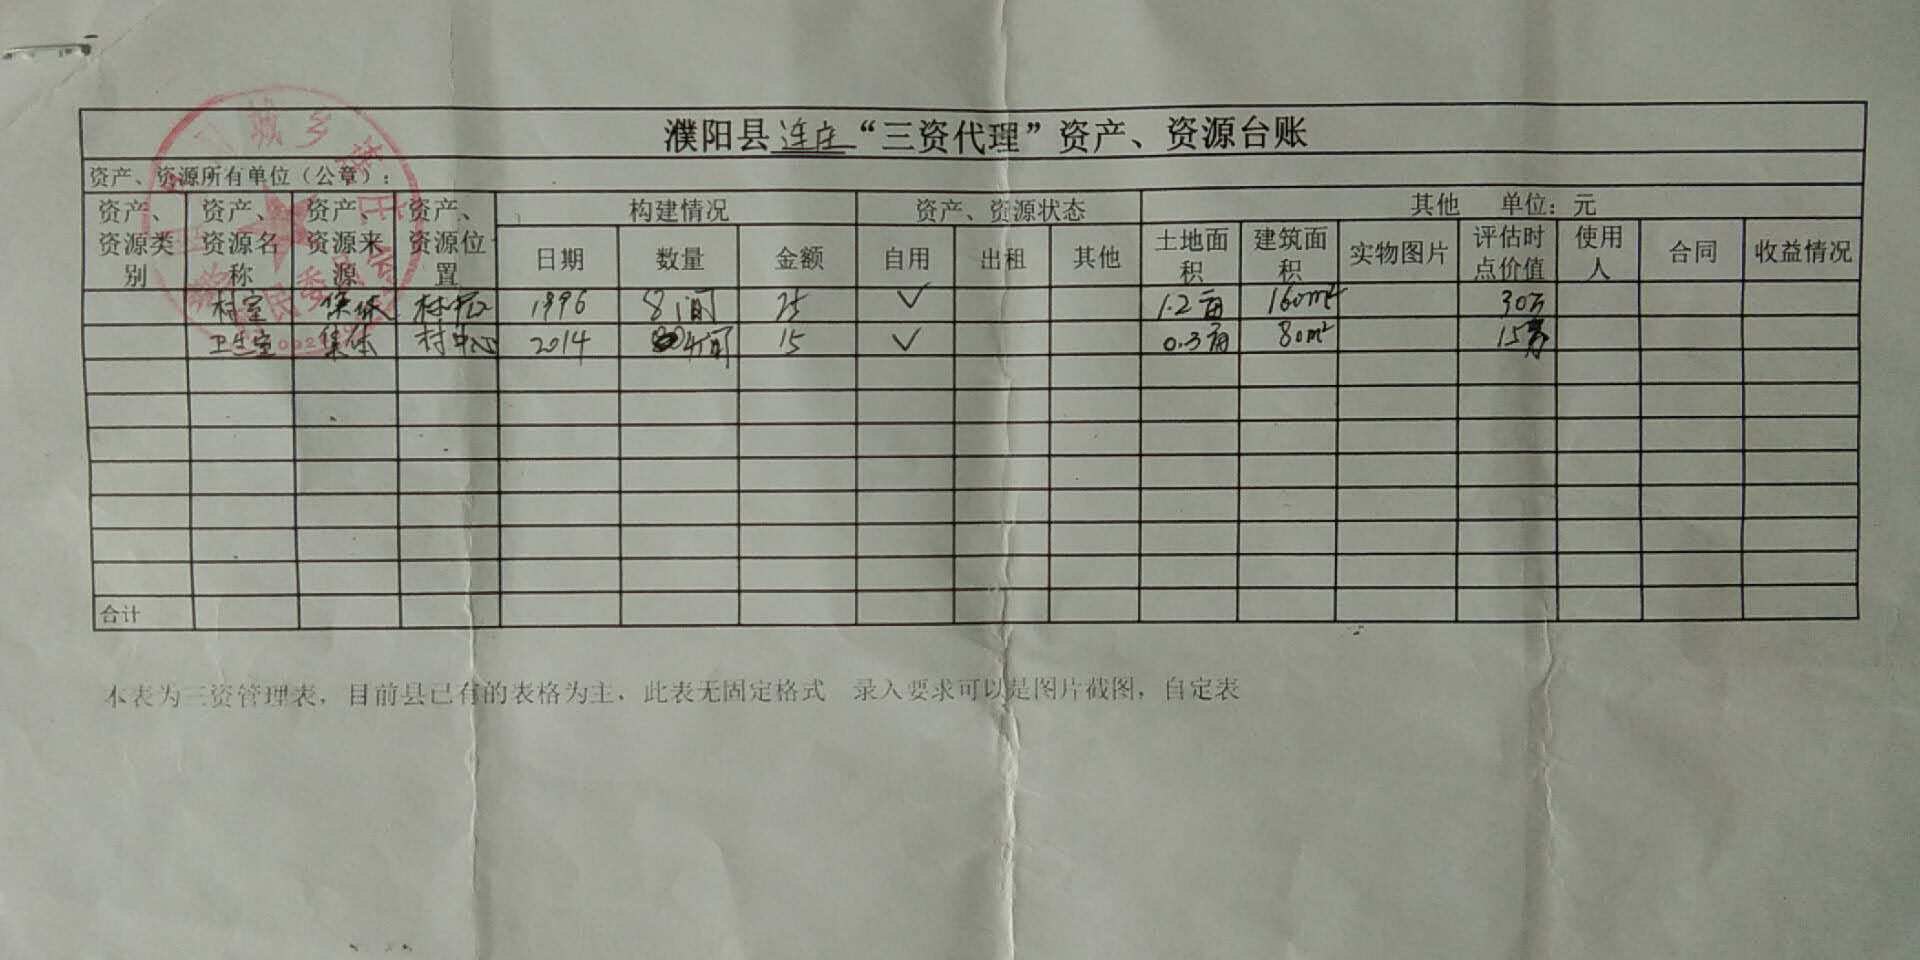 濮阳县连庄“三资代理”资产、资源台账
资产、资源所有单位（公章）：
资产、资源类别 资产、资源名称 资产、资源来源 资产、资源位置 构建情况 资产、资源状态 其他 单位：元
日期 数量 金额 自用 出租 其他 土地面积 建筑面积 实物图片 评估时点价值 使用人 合同 收益情况
村室 集体 村中心 1996 8间 25 ✓ 1.2亩 160m² 30万
卫生室 集体 村中心 2014 4间 15 ✓ 0.3亩 80m² 15万
合计
本表为三资管理表，目前县已有的表格为主，此表无固定格式 录入要求可以是图片截图，自定表